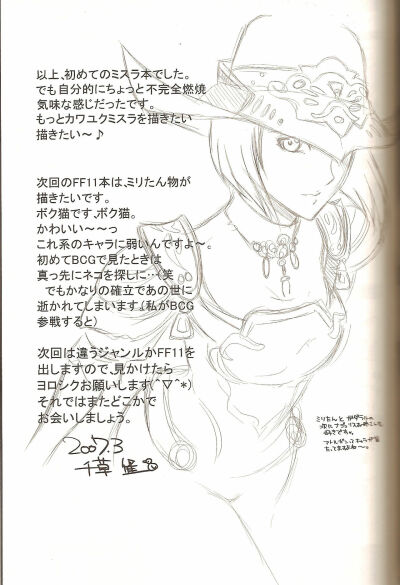 以上、初めてのミスラ本でした。
でも自分的にちょっと不完全燃焼
気味な感じだったです。
もっとカワユクミスラを描きたい
描きたい～♪
次回のFF11本は、ミリたん物が
描きたいです。
ボク猫です、ボク猫。
かわいい～～っ
これ系のキャラに弱いんですよ～。
初めてBCGで見たときは
真っ先にネコを探しに…(笑
でもかなりの確立であの世に
逝かれてしまいます。(私がBCG
参戦すると)
次回は違うジャンルかFF11を
出しますので、見かけたら
ヨロシクお願いします(^▽^*)
それではまたどこかで
お会いしましょう。
2007.3
千草
ミリたんと
好きです。